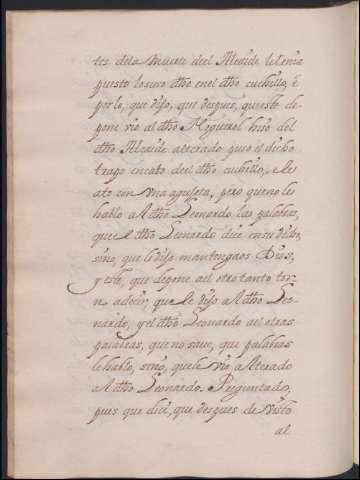 tes dela Muerte deel Alcaide letenia
puesto losuso dtho enel dtho cuchillo, é
porlo, que dijo, que despues, queste de-
pone vio al dtho Miguel hijo del
dtho Alcaide alterado que o dicho
trago encato deel dtho cuchillo, ele
ato con Vna agujeta, pero queno le
hablo a el dtho Leonardo las palabras,
que el dtho Leonardo dice ensu dicho,
sino, que le dijo mantengaos Dios,
y esto, que depone, a el otro tanto tor-
no adecir, que le dijo a el dtho Leo-
nardo, y el dtho Leonardo a el otras
palabras, que no save, que palabras
le hablo, sino, quele vio alterado
a el dtho Leonardo. Preguntado,
pues que dice, que despues de Visto
al